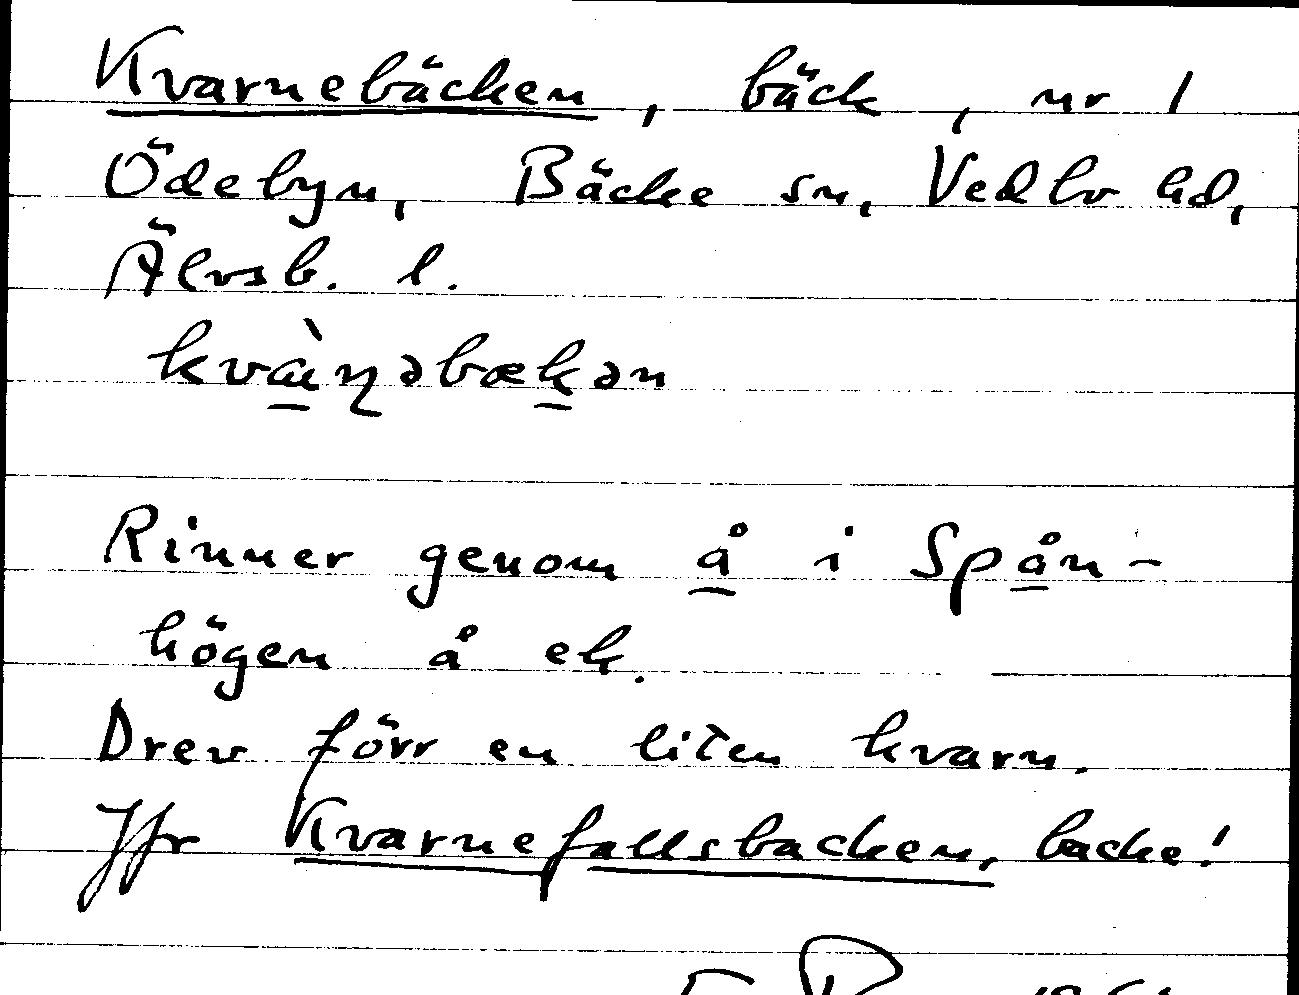 Kvarnebäcken, bäck, nr 1
Ödebyn, Bäcke sn, Vedbo hd,
Älvsb. l.
kvàɳəbækən
Rinner genom å i Spån-
högen å ek.
Drev förr en liten kvarn.
Jfr Kvarnefallsbacken, backe!